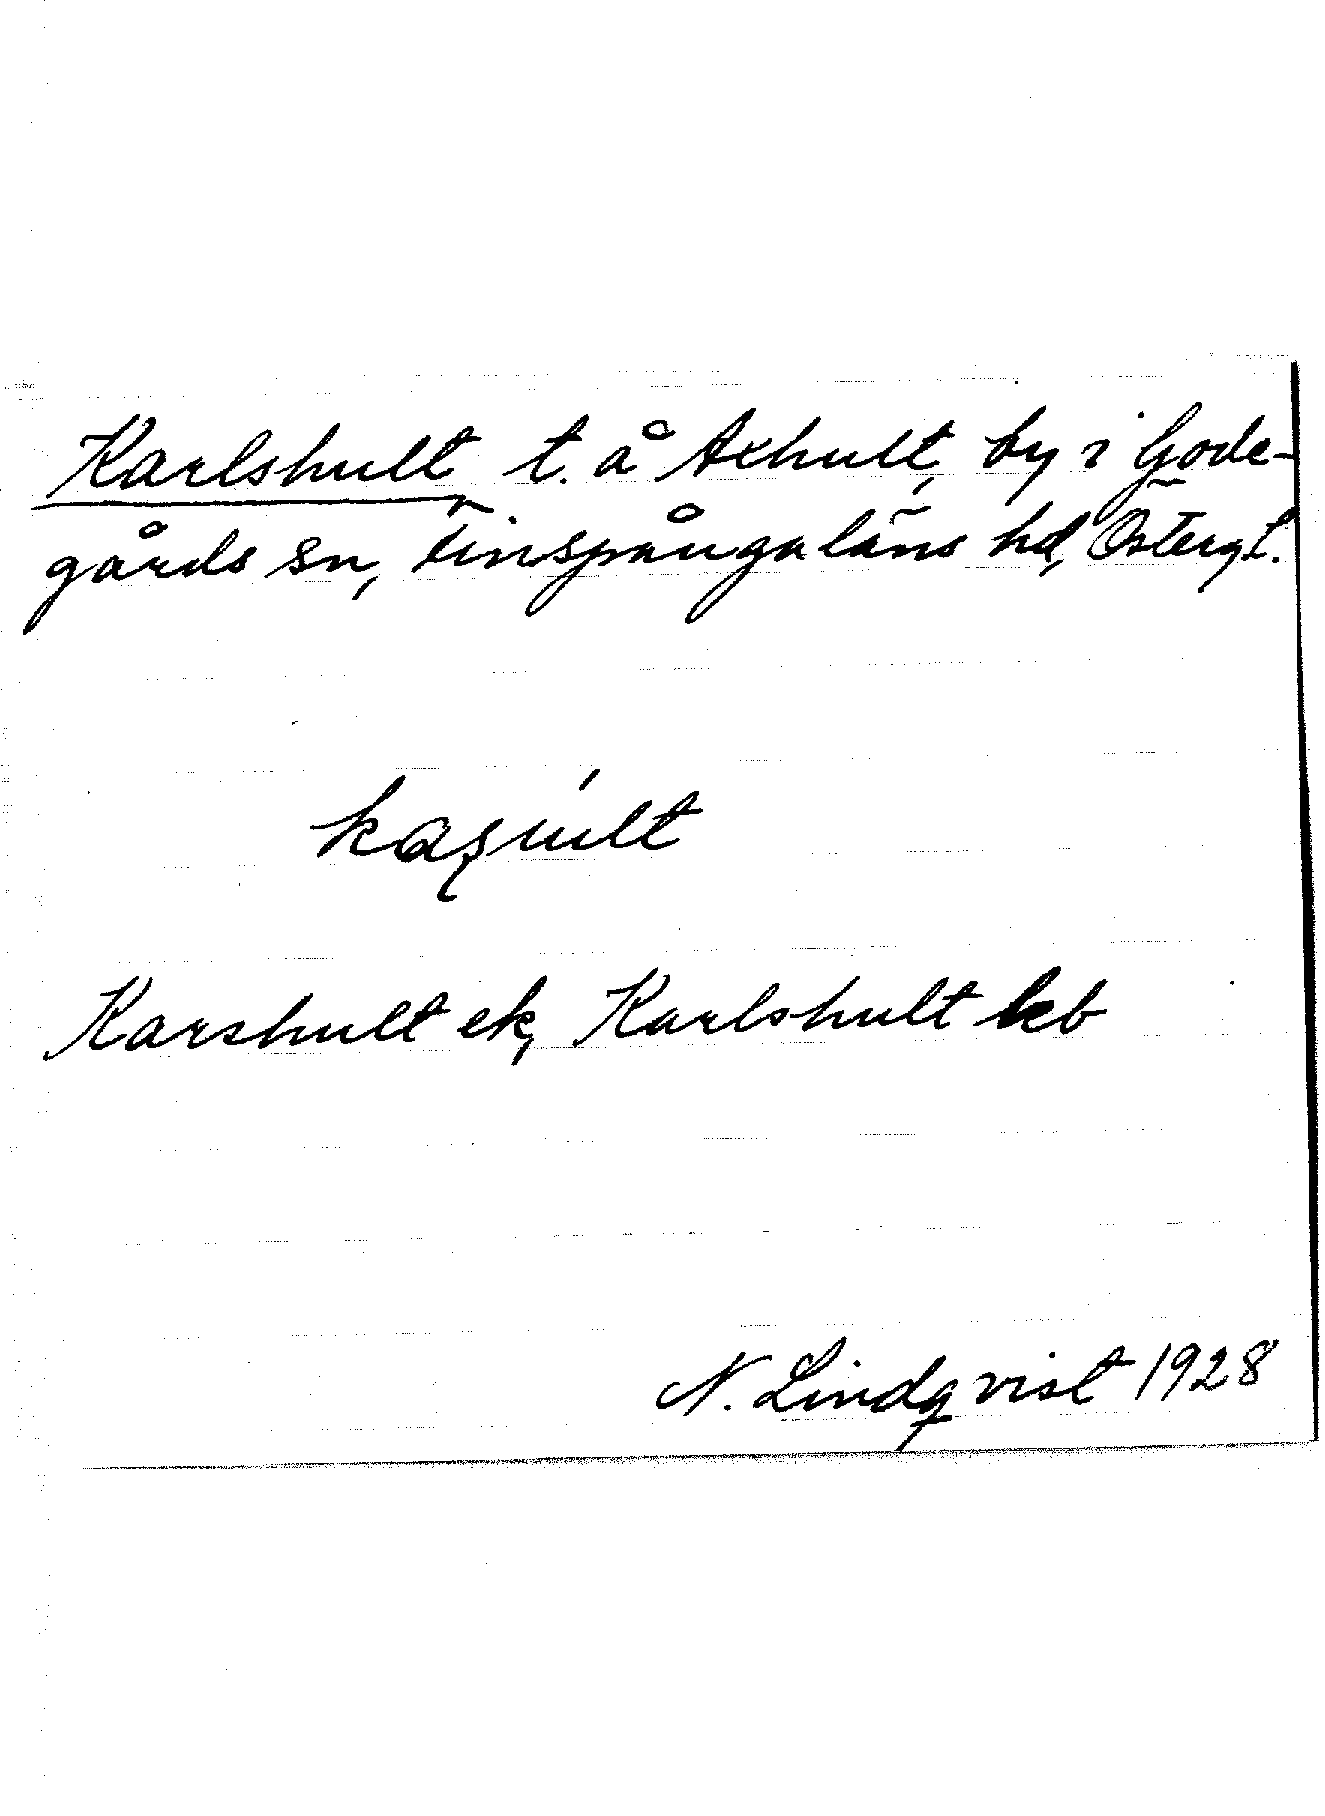 Karlshult t. å Axhult, by i Gode-
gårds sn, Finspånga läns hd, Östergl.
kaşúlt
Karshult ek, Karlshult kb
N. Lindqvist 1928